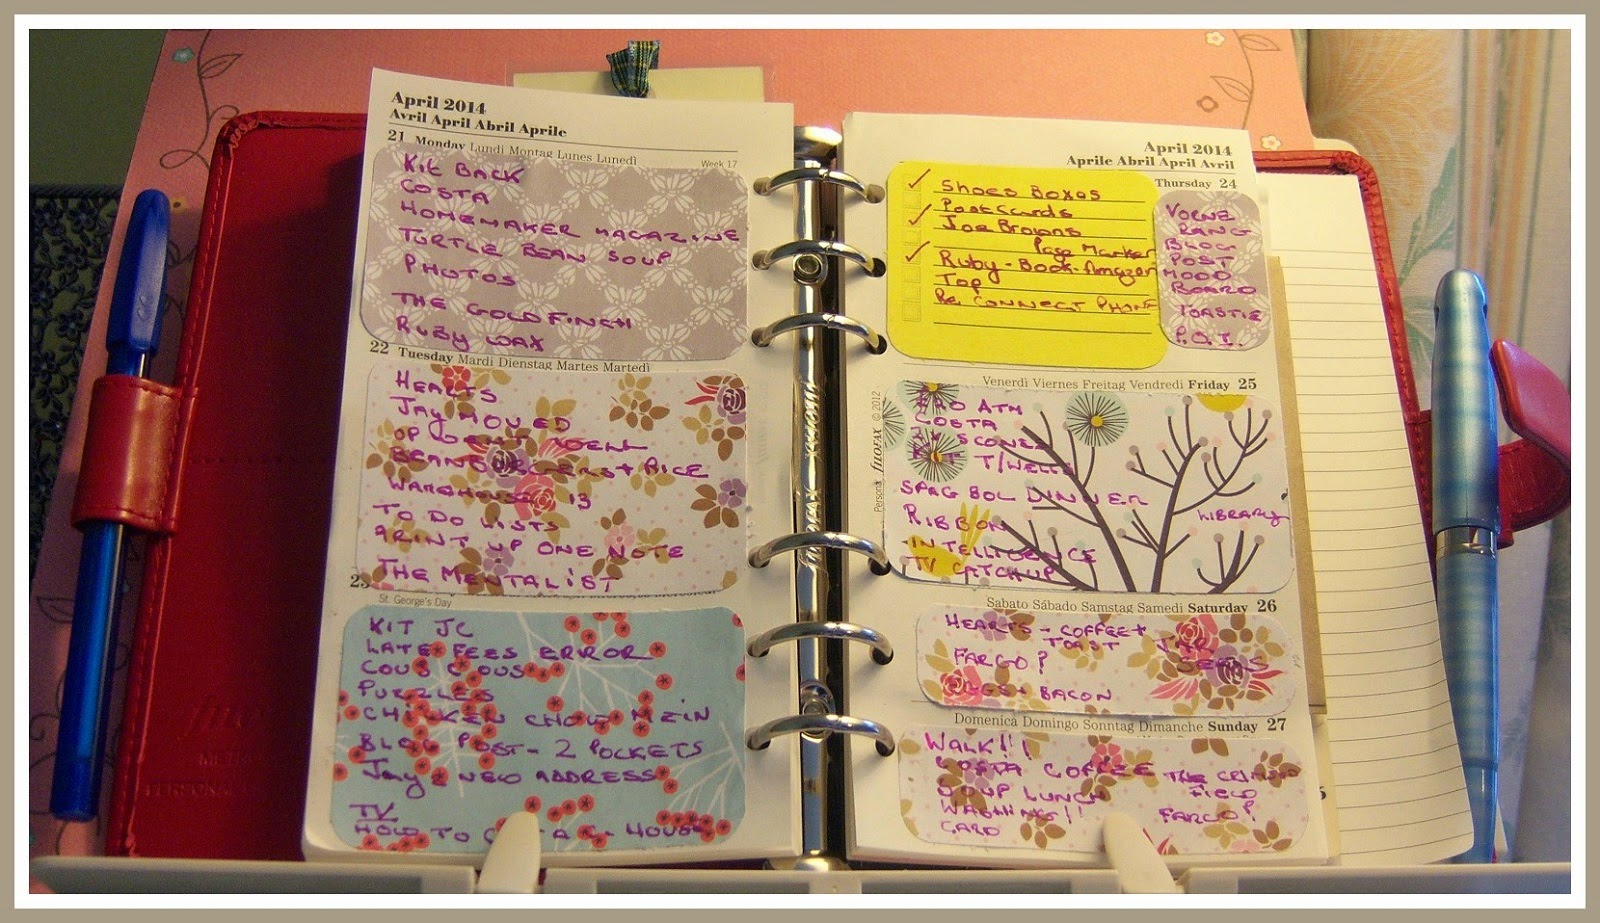 April 2014
Avril April Abril Aprile
21 Monday Lundi Montag Lunes Lunedì
Week 17
Kit BACK
COSTA
HOMEMAKER MAGAZINE
TURTLE BEAN SOUP
PHOTOS
THE GOLDFINCH
RUBY WAX
22 Tuesday Mardi Dienstag Martes Martedì
HEARTS
Jay MOVED
BEANBURGERS + RICE
WAREHOUSE 13
TO DO LISTS
PRINT UP ONE NOTE
THE MENTALIST
23
St. George's Day
KIT JC
LATE FEES ERROR
COUS COUS
PUZZLES
CHICKEN CHOW MEIN
BLOG POST - 2 POCKETS
Jay 2 NEW ADDRESS
TV
HOW TO GET A C - HOUSE
April 2014
Aprile Abril April Avril
Thursday 24
Shoes Boxes
Postcards
Joe Browns
Page Marker
Ruby - Book - Amazon
Top
Re CONNECT PHONE
RANG
BLOG
POST
MOOD
BOARD
TOASTIE
P.O.I.
Venerdì Viernes Freitag Vendredi Friday 25
Personal filofax © 2012
ATM
COSTA
SCONES
KIT T/WELLS
SPAG BOL DINNER
LIBRARY
RIBBON
INTELLIGENCE
TV CATCHUP
Sabato Sábado Samstag Samedi Saturday 26
HEARTS - COFFEE +
TOAST JAR
FARGO? SEEDS
EGGS + BACON
Domenica Domingo Sonntag Dimanche Sunday 27
WALK!!!
COSTA COFFEE THE CRIMSON
SOUP LUNCH FIELD
WASHING!! FARGO?
CARD